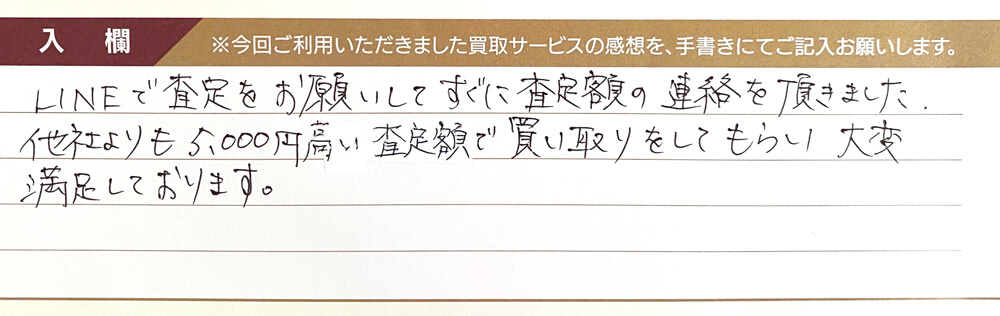 入欄 ※今回ご利用いただきました買取サービスの感想を、手書きにてご記入お願いします。
LINEで査定をお願いしてすぐに査定額の連絡を頂きました.
他社よりも5,000円高い査定額で買い取りをしてもらい大変
満足しております。